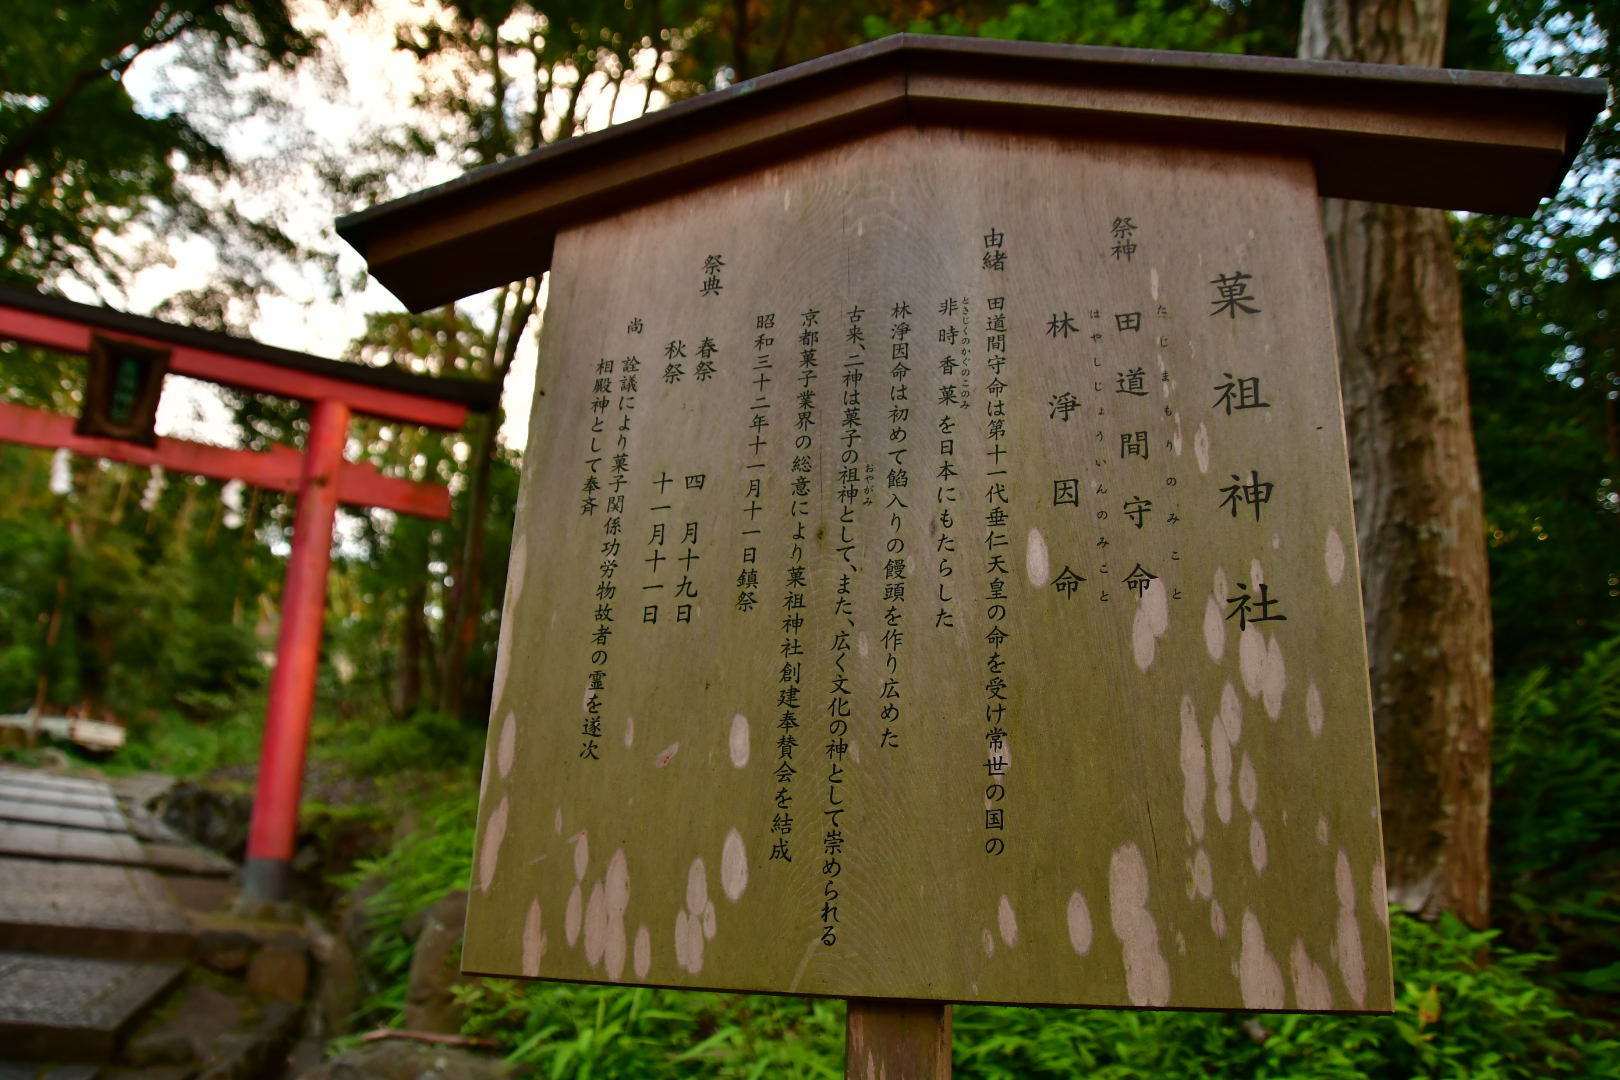 菓祖神社
祭神
たじまもりのみこと
田道間守命
はやしじょういんのみこと
林淨因命
由緒
田道間守命は第十一代垂仁天皇の命を受け常世の国の
ときじくのかぐのこのみ
非時香菓を日本にもたらした
林淨因命は初めて餡入りの饅頭を作り広めた
おやがみ
古来、二神は菓子の祖神として、また、広く文化の神として崇められる
京都菓子業界の総意により菓祖神社創建奉賛会を結成
昭和三十二年十一月十一日鎮祭
祭典
春祭 四月十九日
秋祭 十一月十一日
尚 詮議により菓子関係功労物故者の霊を遂次
相殿神として奉斎